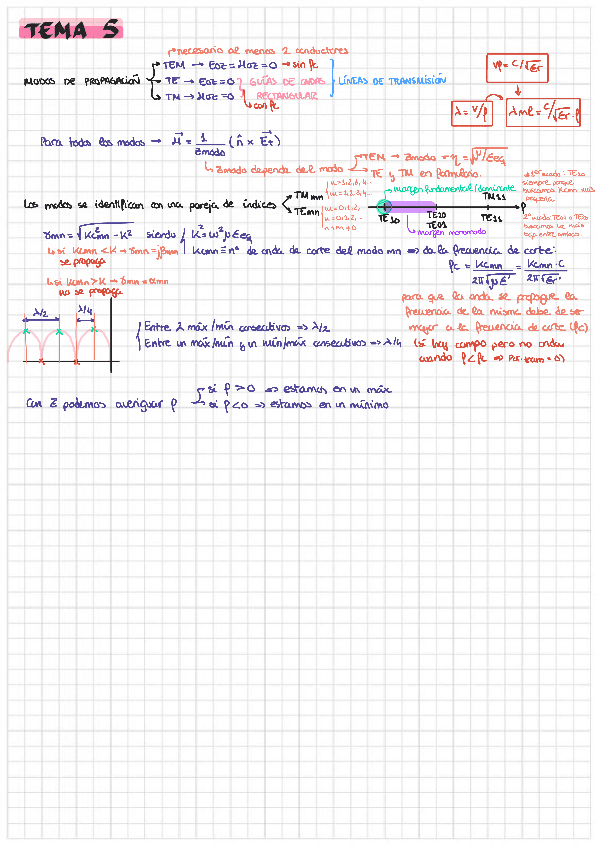 TEMA 5
necesario al menos 2 conductores
MODOS DE PROPAGACIÓN
TEM → Eoz = Hoz = 0 → sin fc
TE → Eoz = 0
TM → Hoz = 0
GUÍAS DE ONDAS
RECTANGULAR
con fc
LÍNEAS DE TRANSMISIÓN
vp = c/√εr
λ = v/f
λml = c/√εr·f
Para todos los modos → H = 1/Zmodo (n̂ × Et)
Zmodo depende del modo
TEM → Zmodo = η = √μ/εeq
TE y TM en formulario.
Los modos se identifican con una pareja de índices
TMmn
TEmn
margen fundamental/dominante
TM11
f
TE10
TE20
TE01
TE11
margen monomodo
1er modo: TE10
siempre porque
buscamos Kcmn más
pequeña
2º modo: TE01 o TE20
buscamos la más
baja entre ambas
γmn = √Kc²mn - K² siendo
K² = ω²μεeq
Kcmn ≡ nº de onda de corte del modo mn ⇒ da la frecuencia de corte:
si Kcmn < K → γmn = jβmn
se propaga
si Kcmn > K → γmn = αmn
no se propaga
fc = Kcmn/2π√με' = Kcmn·c/2π√εr'
para que la onda se propague la
frecuencia de la misma debe de ser
mayor a la frecuencia de corte (fc)
(si hay campo pero no ondas
cuando f<fc ⇒ Pot.trans = 0)
λ/2
λ/4
Entre 2 máx/mín consecutivos ⇒ λ/2
Entre un máx/mín y un mín/máx consecutivos ⇒ λ/4
Con Z podemos averiguar ρ
si ρ > 0 ⇒ estamos en un máx
si ρ < 0 ⇒ estamos en un mínimo